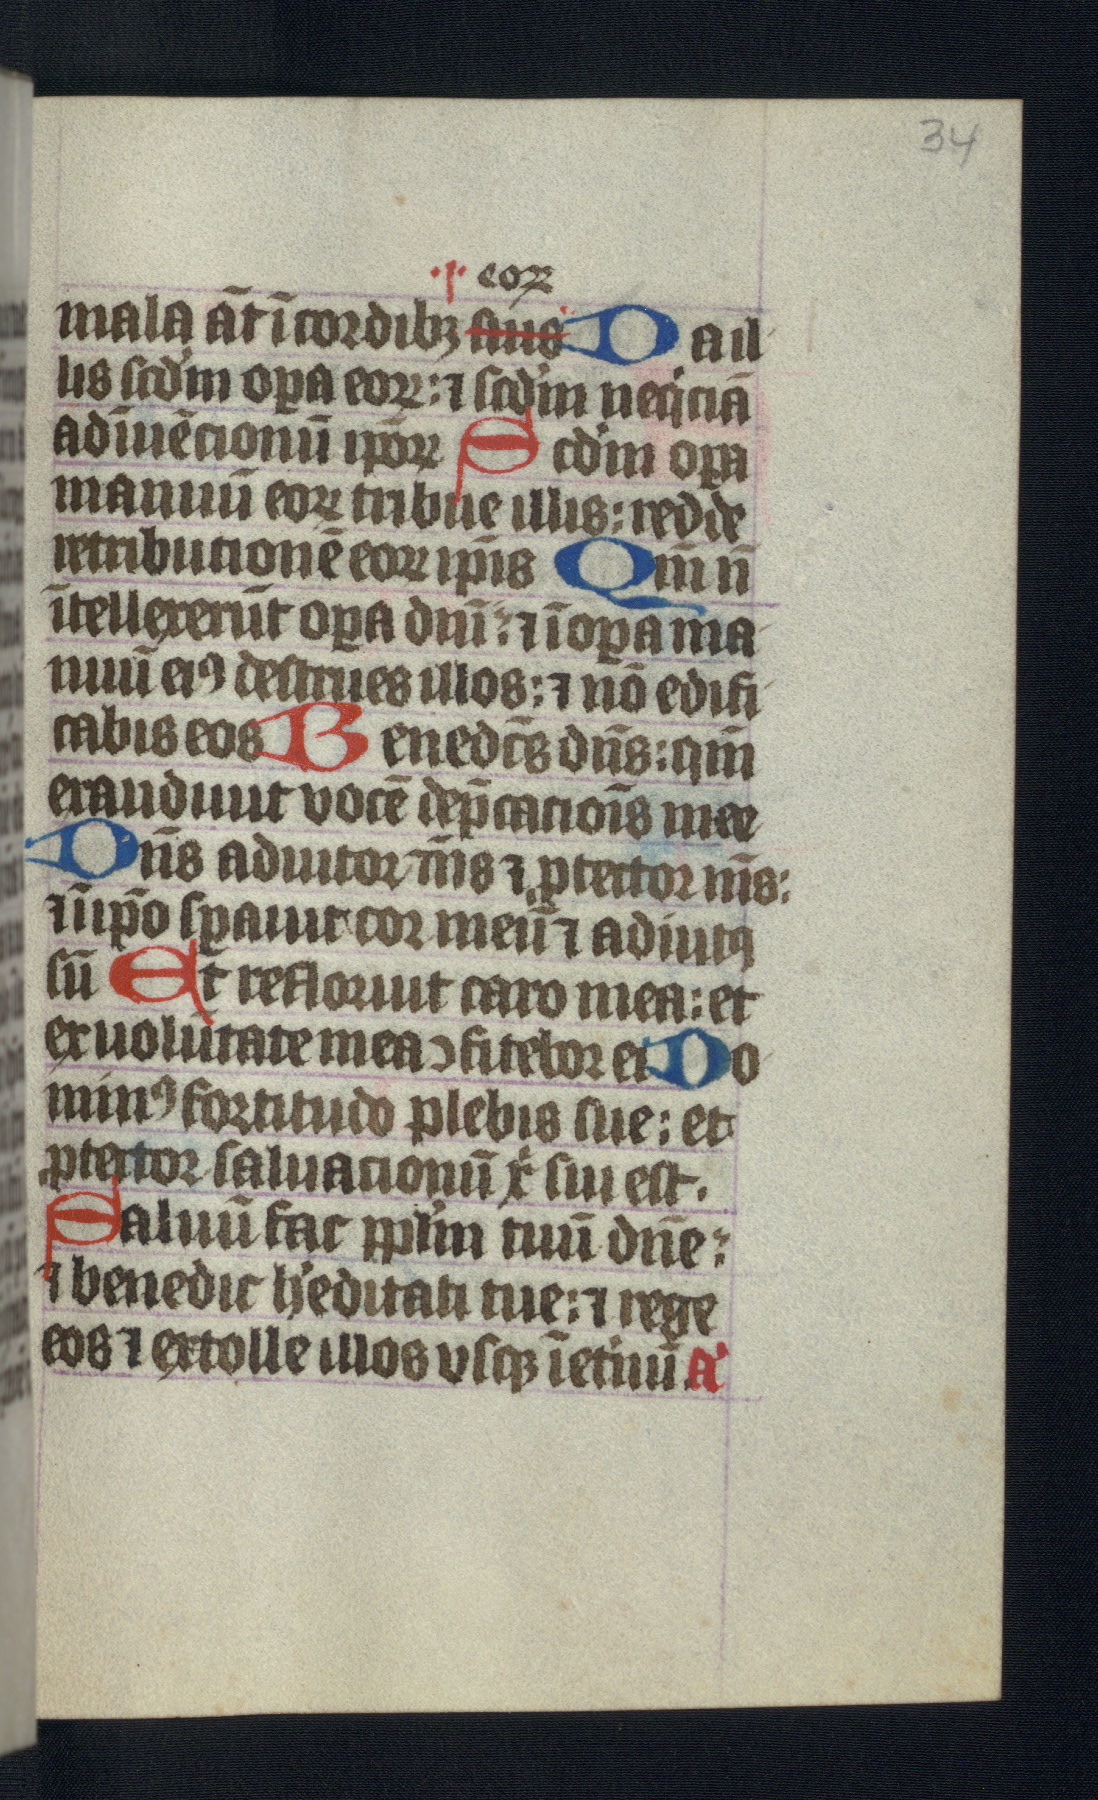 34
·ꝑ· eoꝝ
mala āt ī cordibꝫ suis Da il
lis scd'm oꝑa eoꝝ: ⁊ scd'm neq̇ciā
adīuēcionū ip̄oꝝ Scd'm oꝑa
manuū eoꝝ tribue illis: redde
retributionē eoꝝ ip̄is Qm̄ n̄
ītellexerūt oꝑa dn̄i: ⁊ ī oꝑa ma
nuū eiꝰ destrues illos: ⁊ nō edifi
cabis eos Benedc̄s dn̄s: qm̄
exaudiuit vocē dep̄cacioīs mee
Dn̄s adiutor m̄s ⁊ ꝓtector m̄s:
⁊ ī ip̄o sꝑauit cor meū ⁊ adiutꝰ
sū Et refloruit caro mea: et
ex uolūtate mea ↄfitebor ei Do
minꝰ fortitudo plebis sue: et
ꝓtector saluacionū xr̄ sui est.
Saluū fac ppl'm tuū dn̄e:
⁊ benedic h'editati tue: ⁊ rege
eos ⁊ extolle illos vsqꝫ ī et'nū. a'